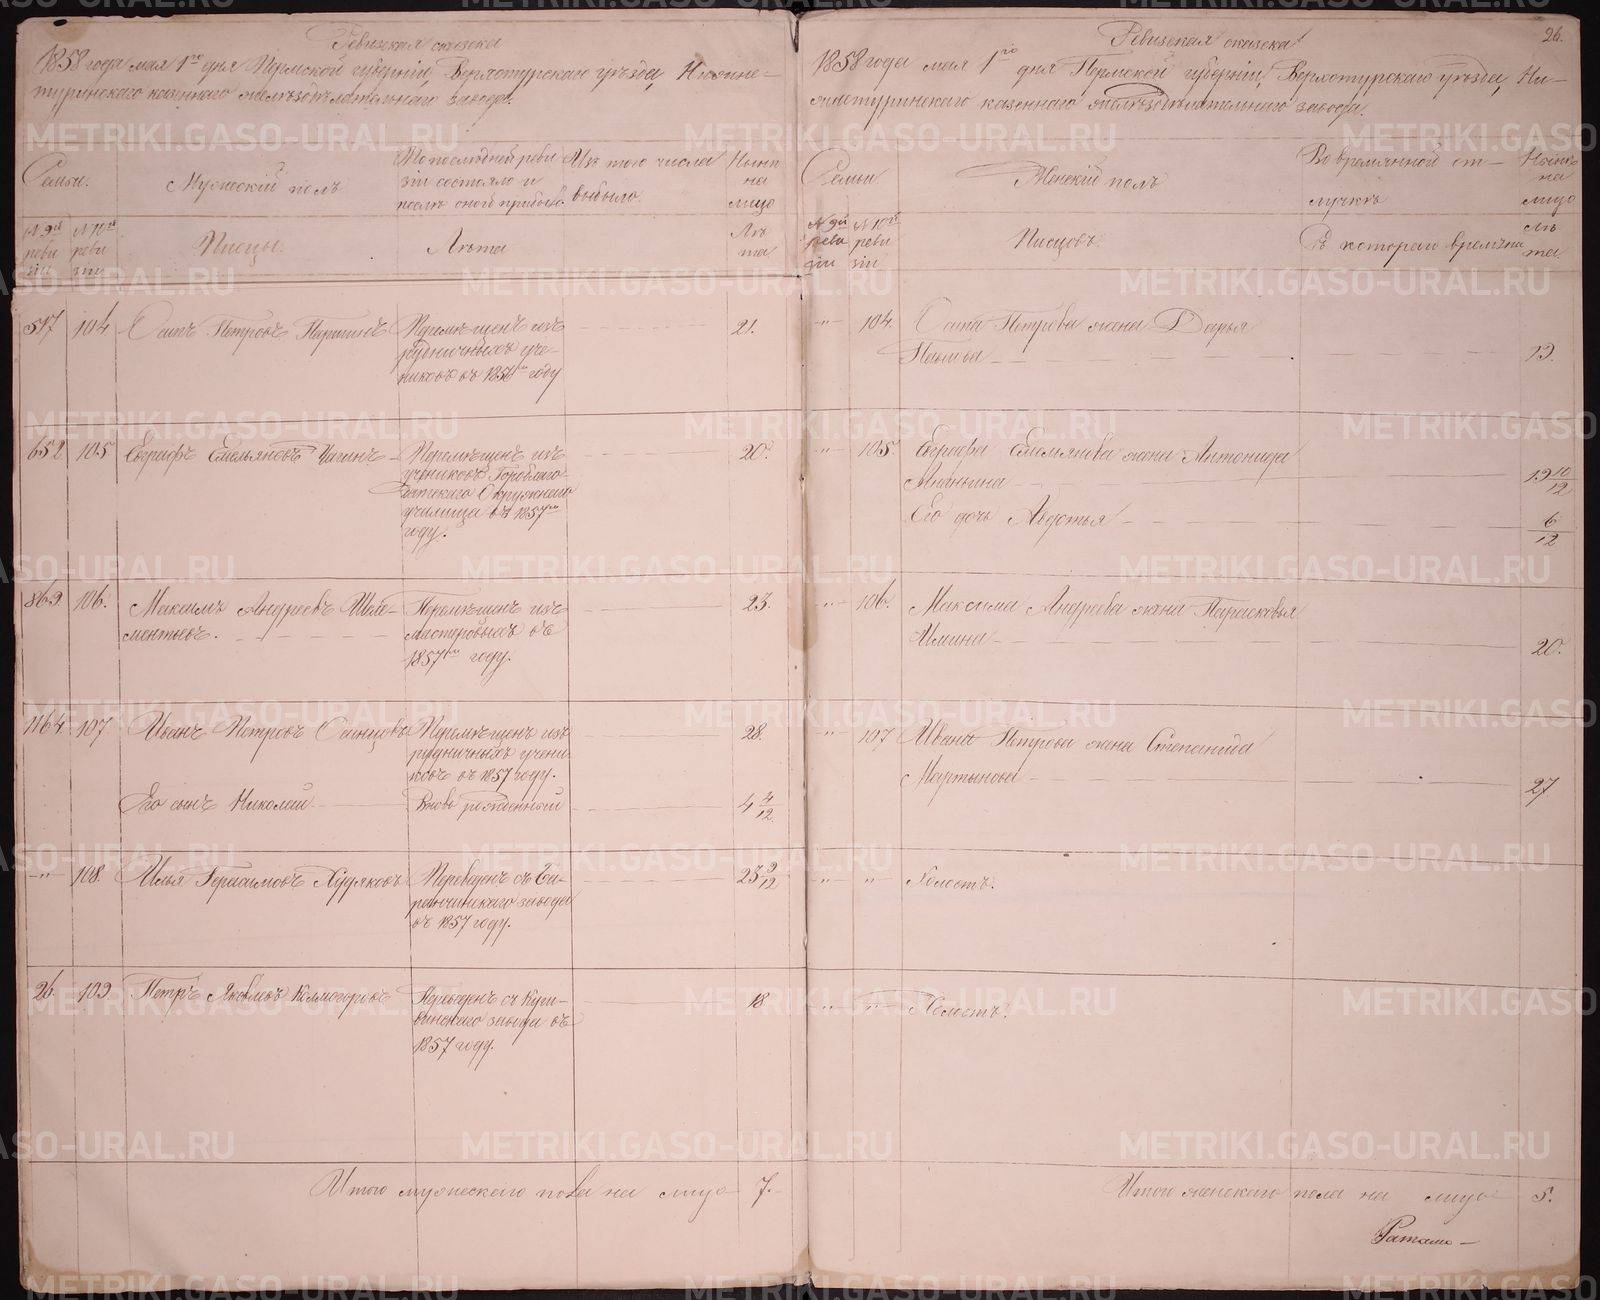 Ревизская сказка
1858 года мая 1го дня Пермской губернiи, Верхотурскаго уѣзда, Нижне-
туринскаго казеннаго желѣзодѣлательнаго завода.
Семьи.
Мужескiй полъ
По последней реви
зiи состояло и
послѣ оной прибыло.
Изъ того числа
выбыло.
Нынѣ
на
лицо
№ 9й
реви
зiи
№ 10й
реви
зiи
Писцы.
Лѣта
Лѣ
та
517 104 Петровъ Перемѣщенъ изъ 21.
рудничныхъ уче-
никовъ въ 1857м году
652 105 Евграфъ Емельяновъ Чагинъ Перемѣщенъ изъ 20.
учениковъ Гороблаго-
датскаго Окружнаго
училища въ 1857м
году.
869 106. Максимъ Андреевъ Перемѣщенъ изъ 23.
ментьевъ. мастеровыхъ въ
1857м году.
1164 107. Иванъ Петровъ Перемѣщенъ изъ 28.
рудничныхъ учени-
ковъ въ 1857 году.
Его сынъ Николай Вновь рожденный 4 4/12.
-"- 108. Илья Герасимовъ Худяковъ Переведенъ съ Ба-
ранчинскаго завода
въ 1857 году.
26. 109. Петръ Яковлевъ Колмогоровъ Переведенъ съ Куш-
винскаго завода въ
1857 году.
18
Итого мужескаго пола на лицо 7.
26.
Ревизская сказка
1858 года мая 1го дня Пермской губернiи, Верхотурскаго уѣзда, Ни-
жнетуринскаго казеннаго желѣзодѣлательнаго завода.
Семьи
Женскiй полъ
Во временной от-
лучкѣ
Нынѣ
на
лицо
№ 9й
реви
зiи
№ 10й
реви
зiи
Писцовъ.
Съ котораго времѣни
Лѣ
та.
-"- 104. Петрова жена Дарья
19.
-"- 105. Евграфа Емельянова жена Антонида
Ананьина 19 10/12
Его дочь Авдотья 6/12
-"- 106. Максима Андреева жена Парасковья
20.
-"- 107 Ивана Петрова жена Степанида
Мартынова 27
-"- -"- Холостъ.
-"- -"- Холостъ.
Итого женскаго пола на лицо 5.
METRIKI.GASO-URAL.RU